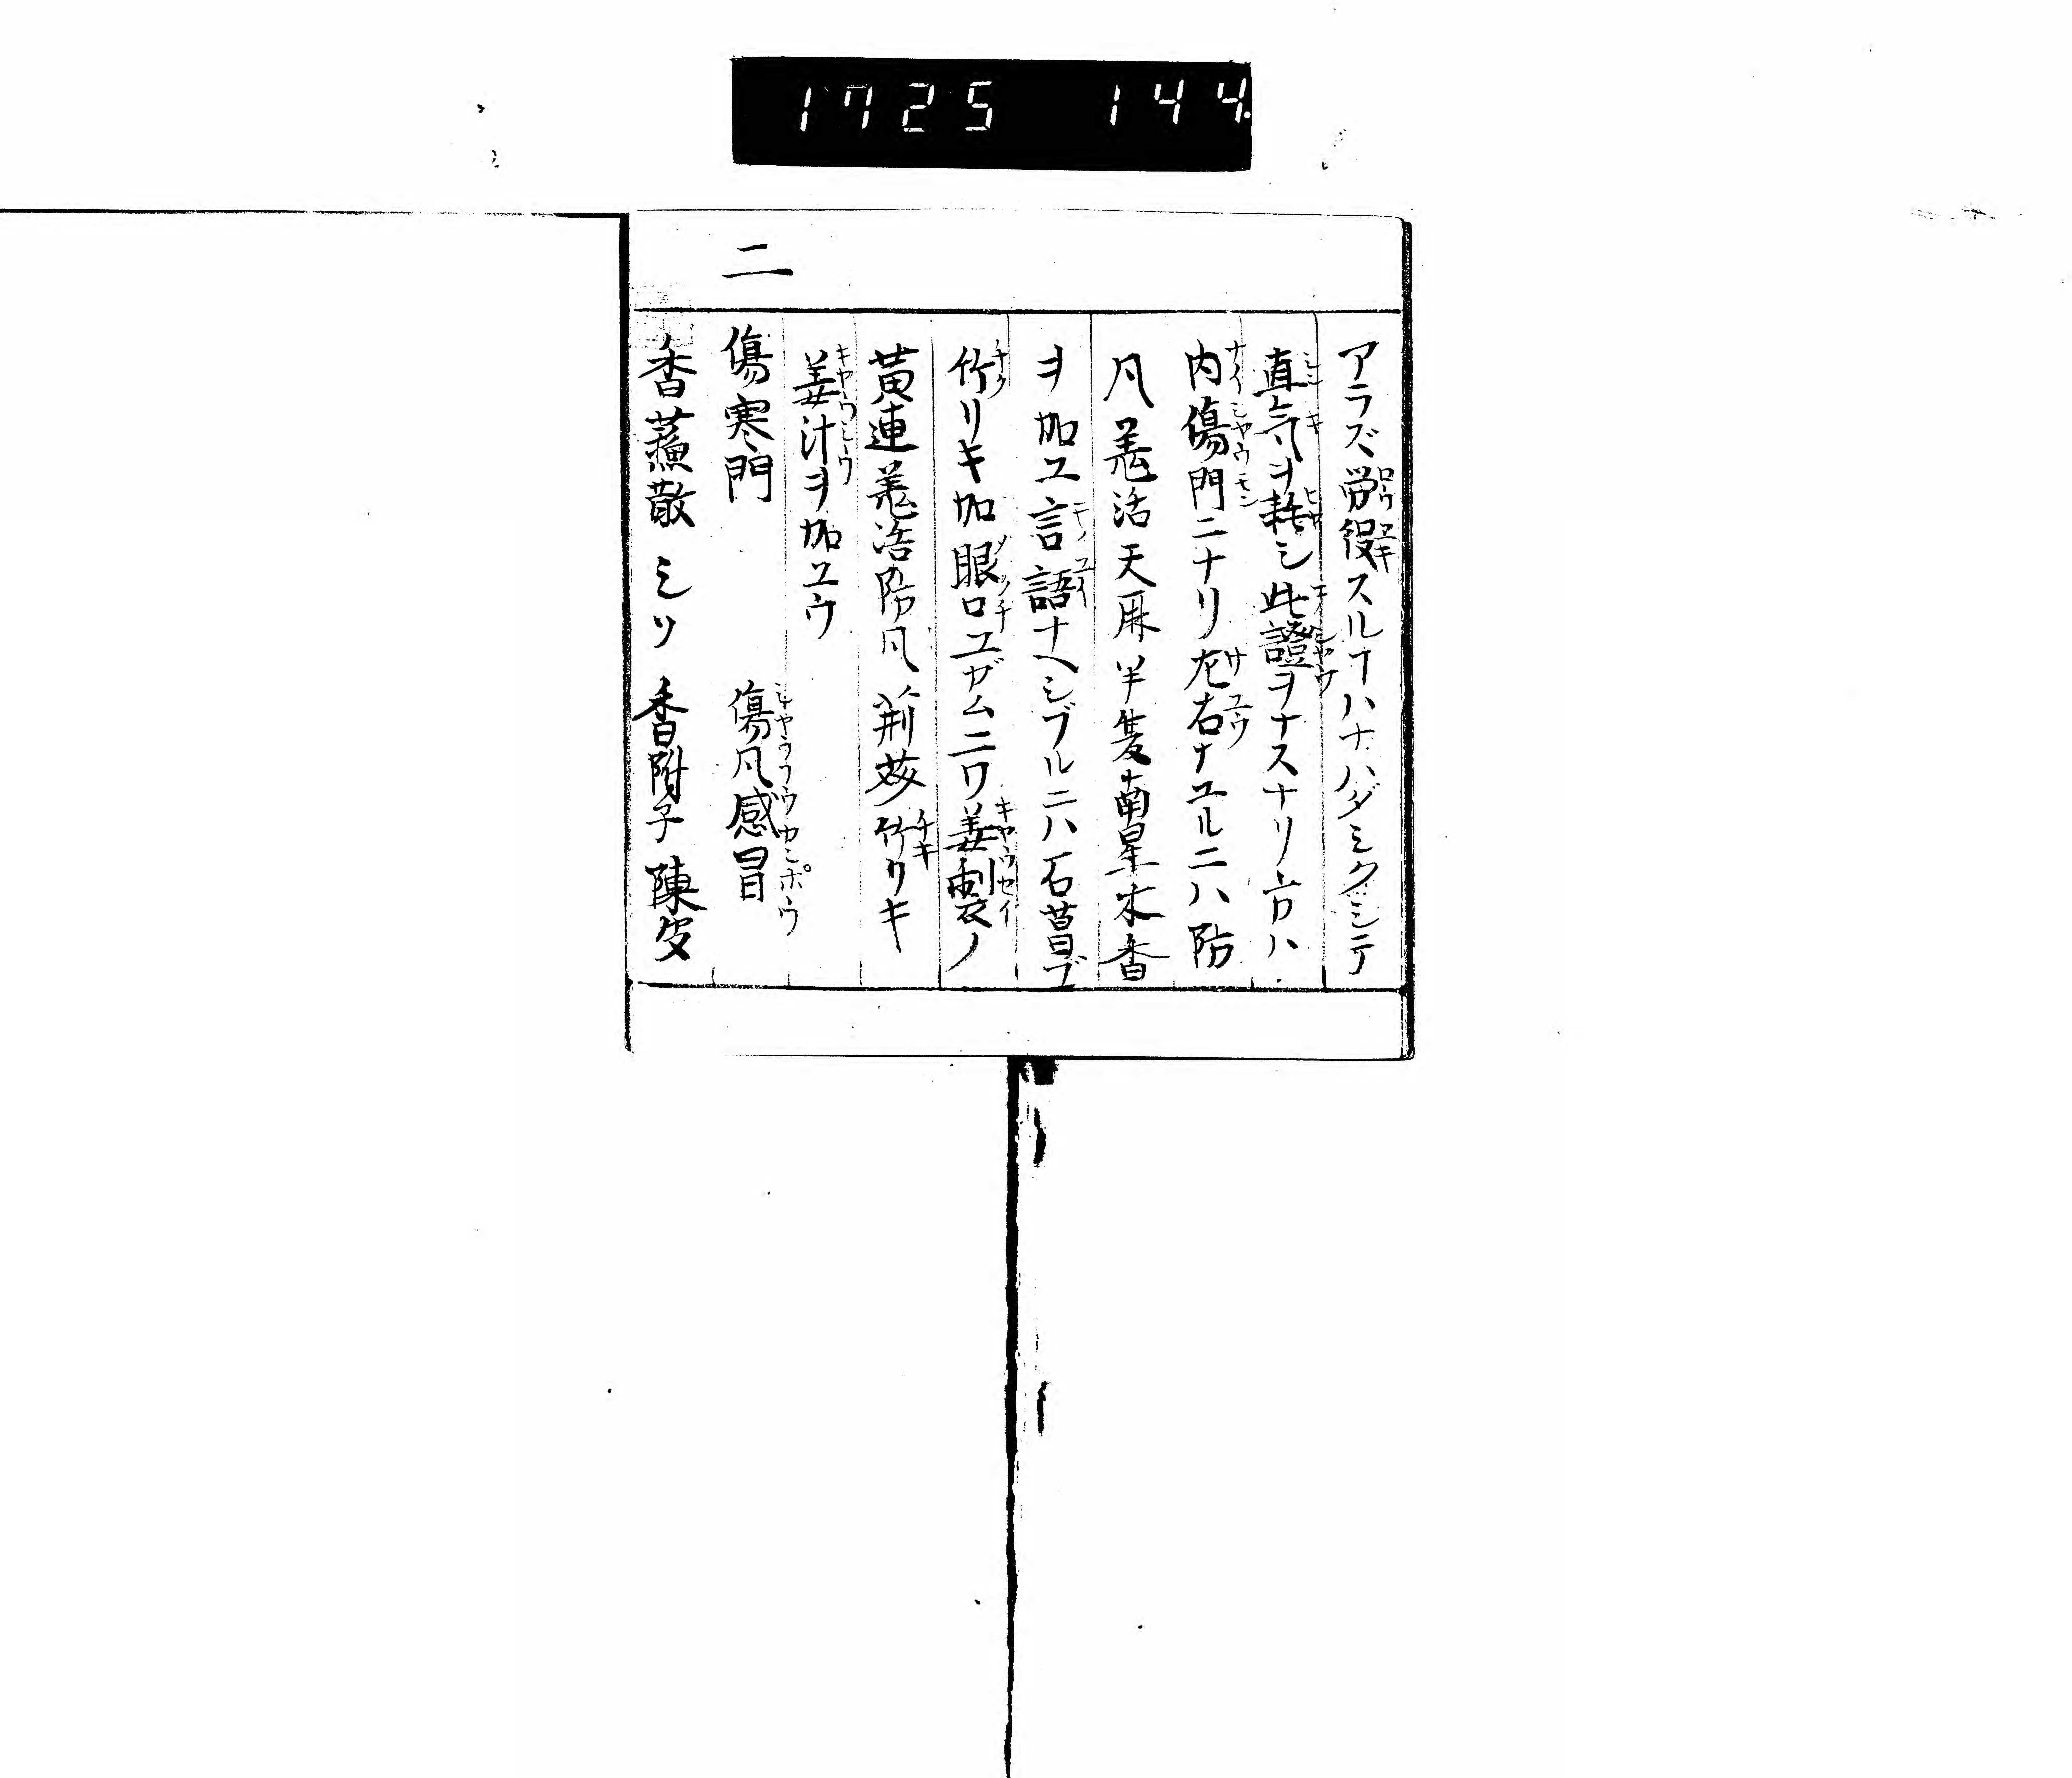 1725 144
アラズ労役スルヿハナハダミクシテ
直気ヲ耗シ此證ヲナスナリ方ハ
内傷門ニナリ左右ナユルニハ防
凡羗活天麻半夏南星木香
ヲ加ユ言語ナヘシブルニハ石菖ブ
竹リキ加眼口ユガムニワ姜製ノ
黄連羗活防凡荊芥竹リキ
姜汁ヲ加ユウ
二
傷寒門 傷凡感冒
香蘓散 シソ 香附子 陳皮